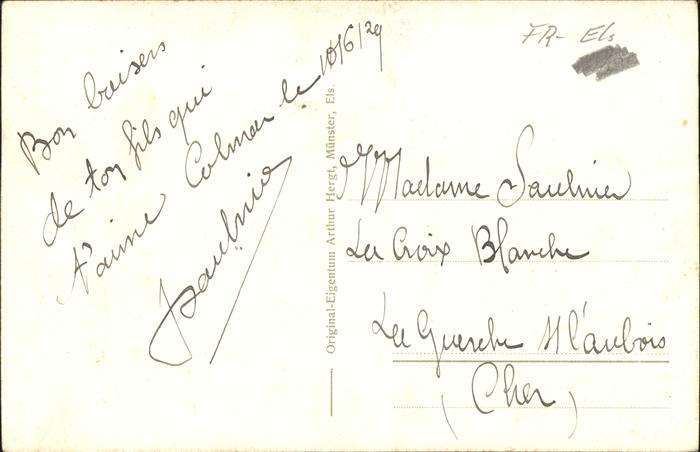 Bon baisers
de ton fils qui
t'aime Colmar le 10/6/29
Saulnier
Original-Eigentum Arthur Hergt, Münster, Els.
FR- Els
Madame Saulnier
La Croix Blanche
La Guerche s/l'aubois
(Cher)